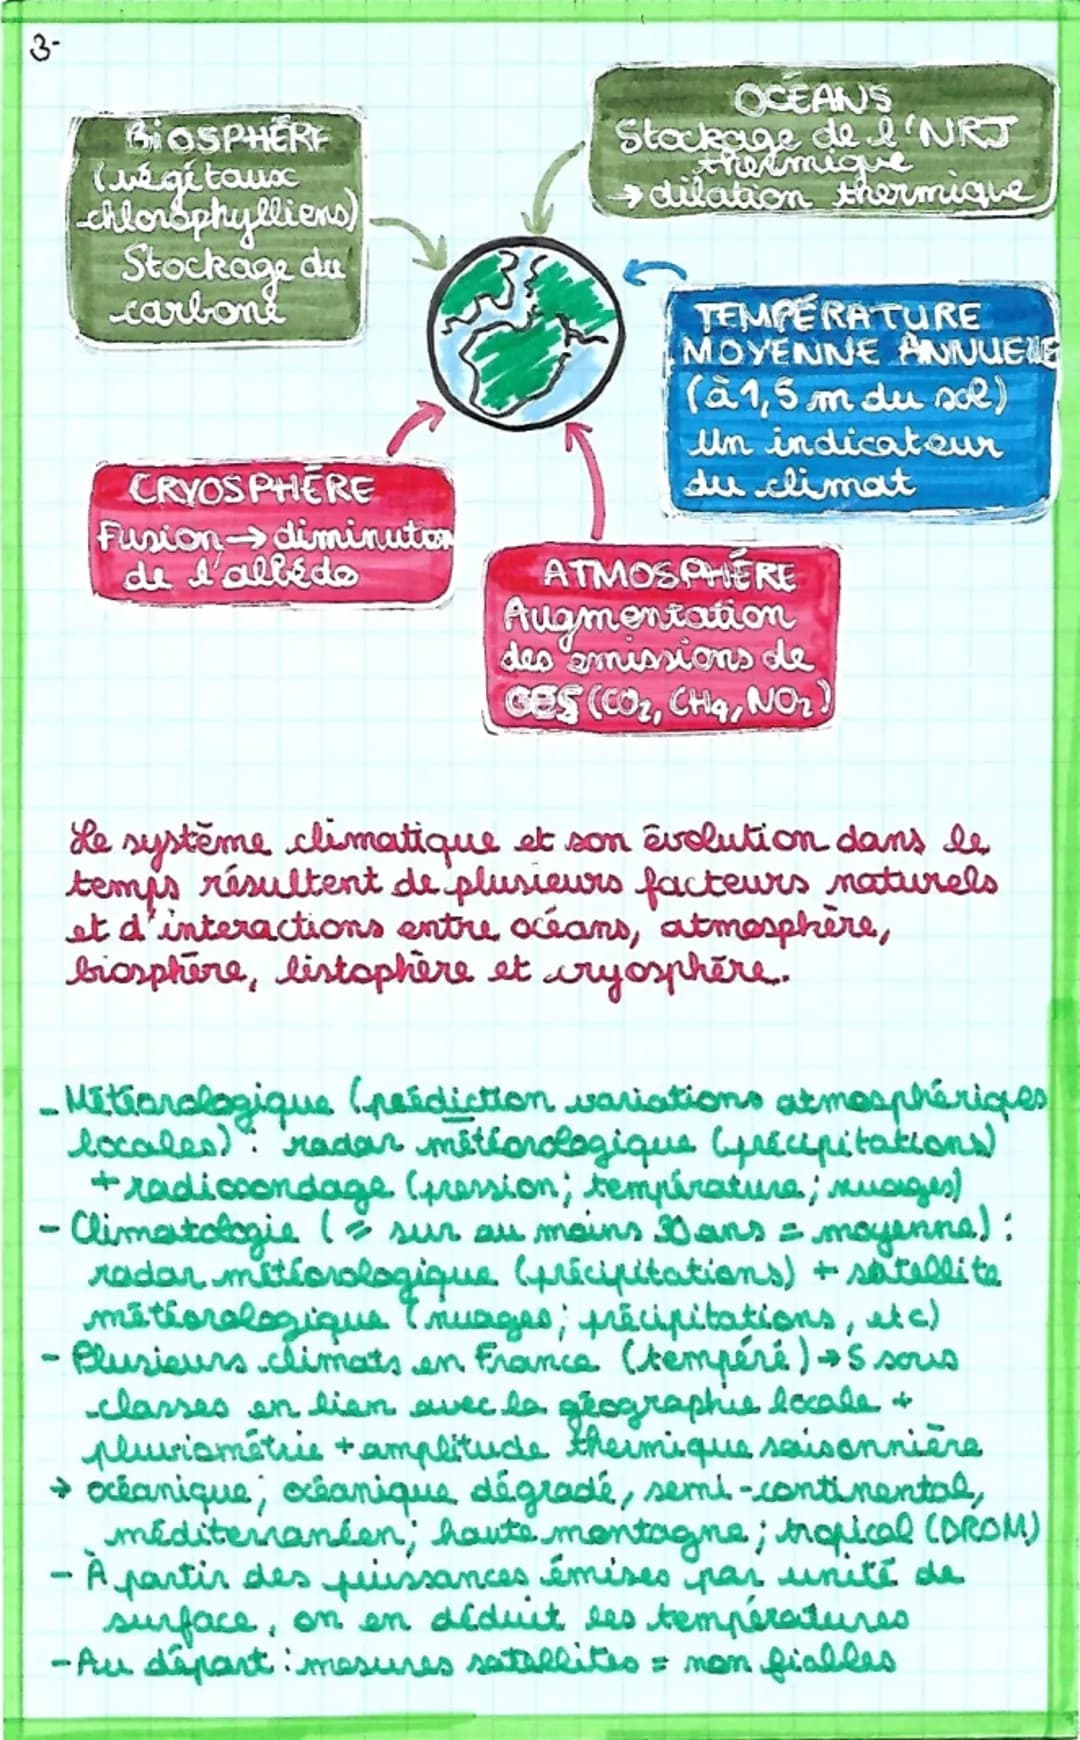 3-
BIOSPHÈRE
(végétaux
chlorophylliens)
Stockage du
carbone
OCÉANS
Stockage de l'NRJ
thermique
→ dilation thermique
TEMPÉRATURE
MOYENNE ANNUELLE
(à 1,5 m du sol)
Un indicateur
du climat
CRYOSPHÈRE
Fusion → diminution
de l'albédo
ATMOSPHÈRE
Augmentation
des émissions de
GES (CO₂, CH₄, NO₂)
Le système climatique et son évolution dans le
temps résultent de plusieurs facteurs naturels
et d'interactions entre océans, atmosphère,
biosphère, listophère et cryosphère.
- Météorologique (prédiction variations atmosphériques
locales) : radar météorologique (précipitations)
+ radiosondage (pression; température; nuages)
- Climatologie (= sur au moins 30 ans = moyenne) :
radar météorologique (précipitations) + satellite
météorologique (nuages; précipitations, etc)
- Plusieurs climats en France (tempéré) → 5 sous
classes en lien avec la géographie locale +
pluviométrie + amplitude thermique saisonnière
→ océanique; océanique dégradé, semi-continental,
méditerranéen; haute montagne; tropical (DROM)
- À partir des puissances émises par unité de
surface, on en déduit les températures
- Au départ : mesures satellites = non fiables